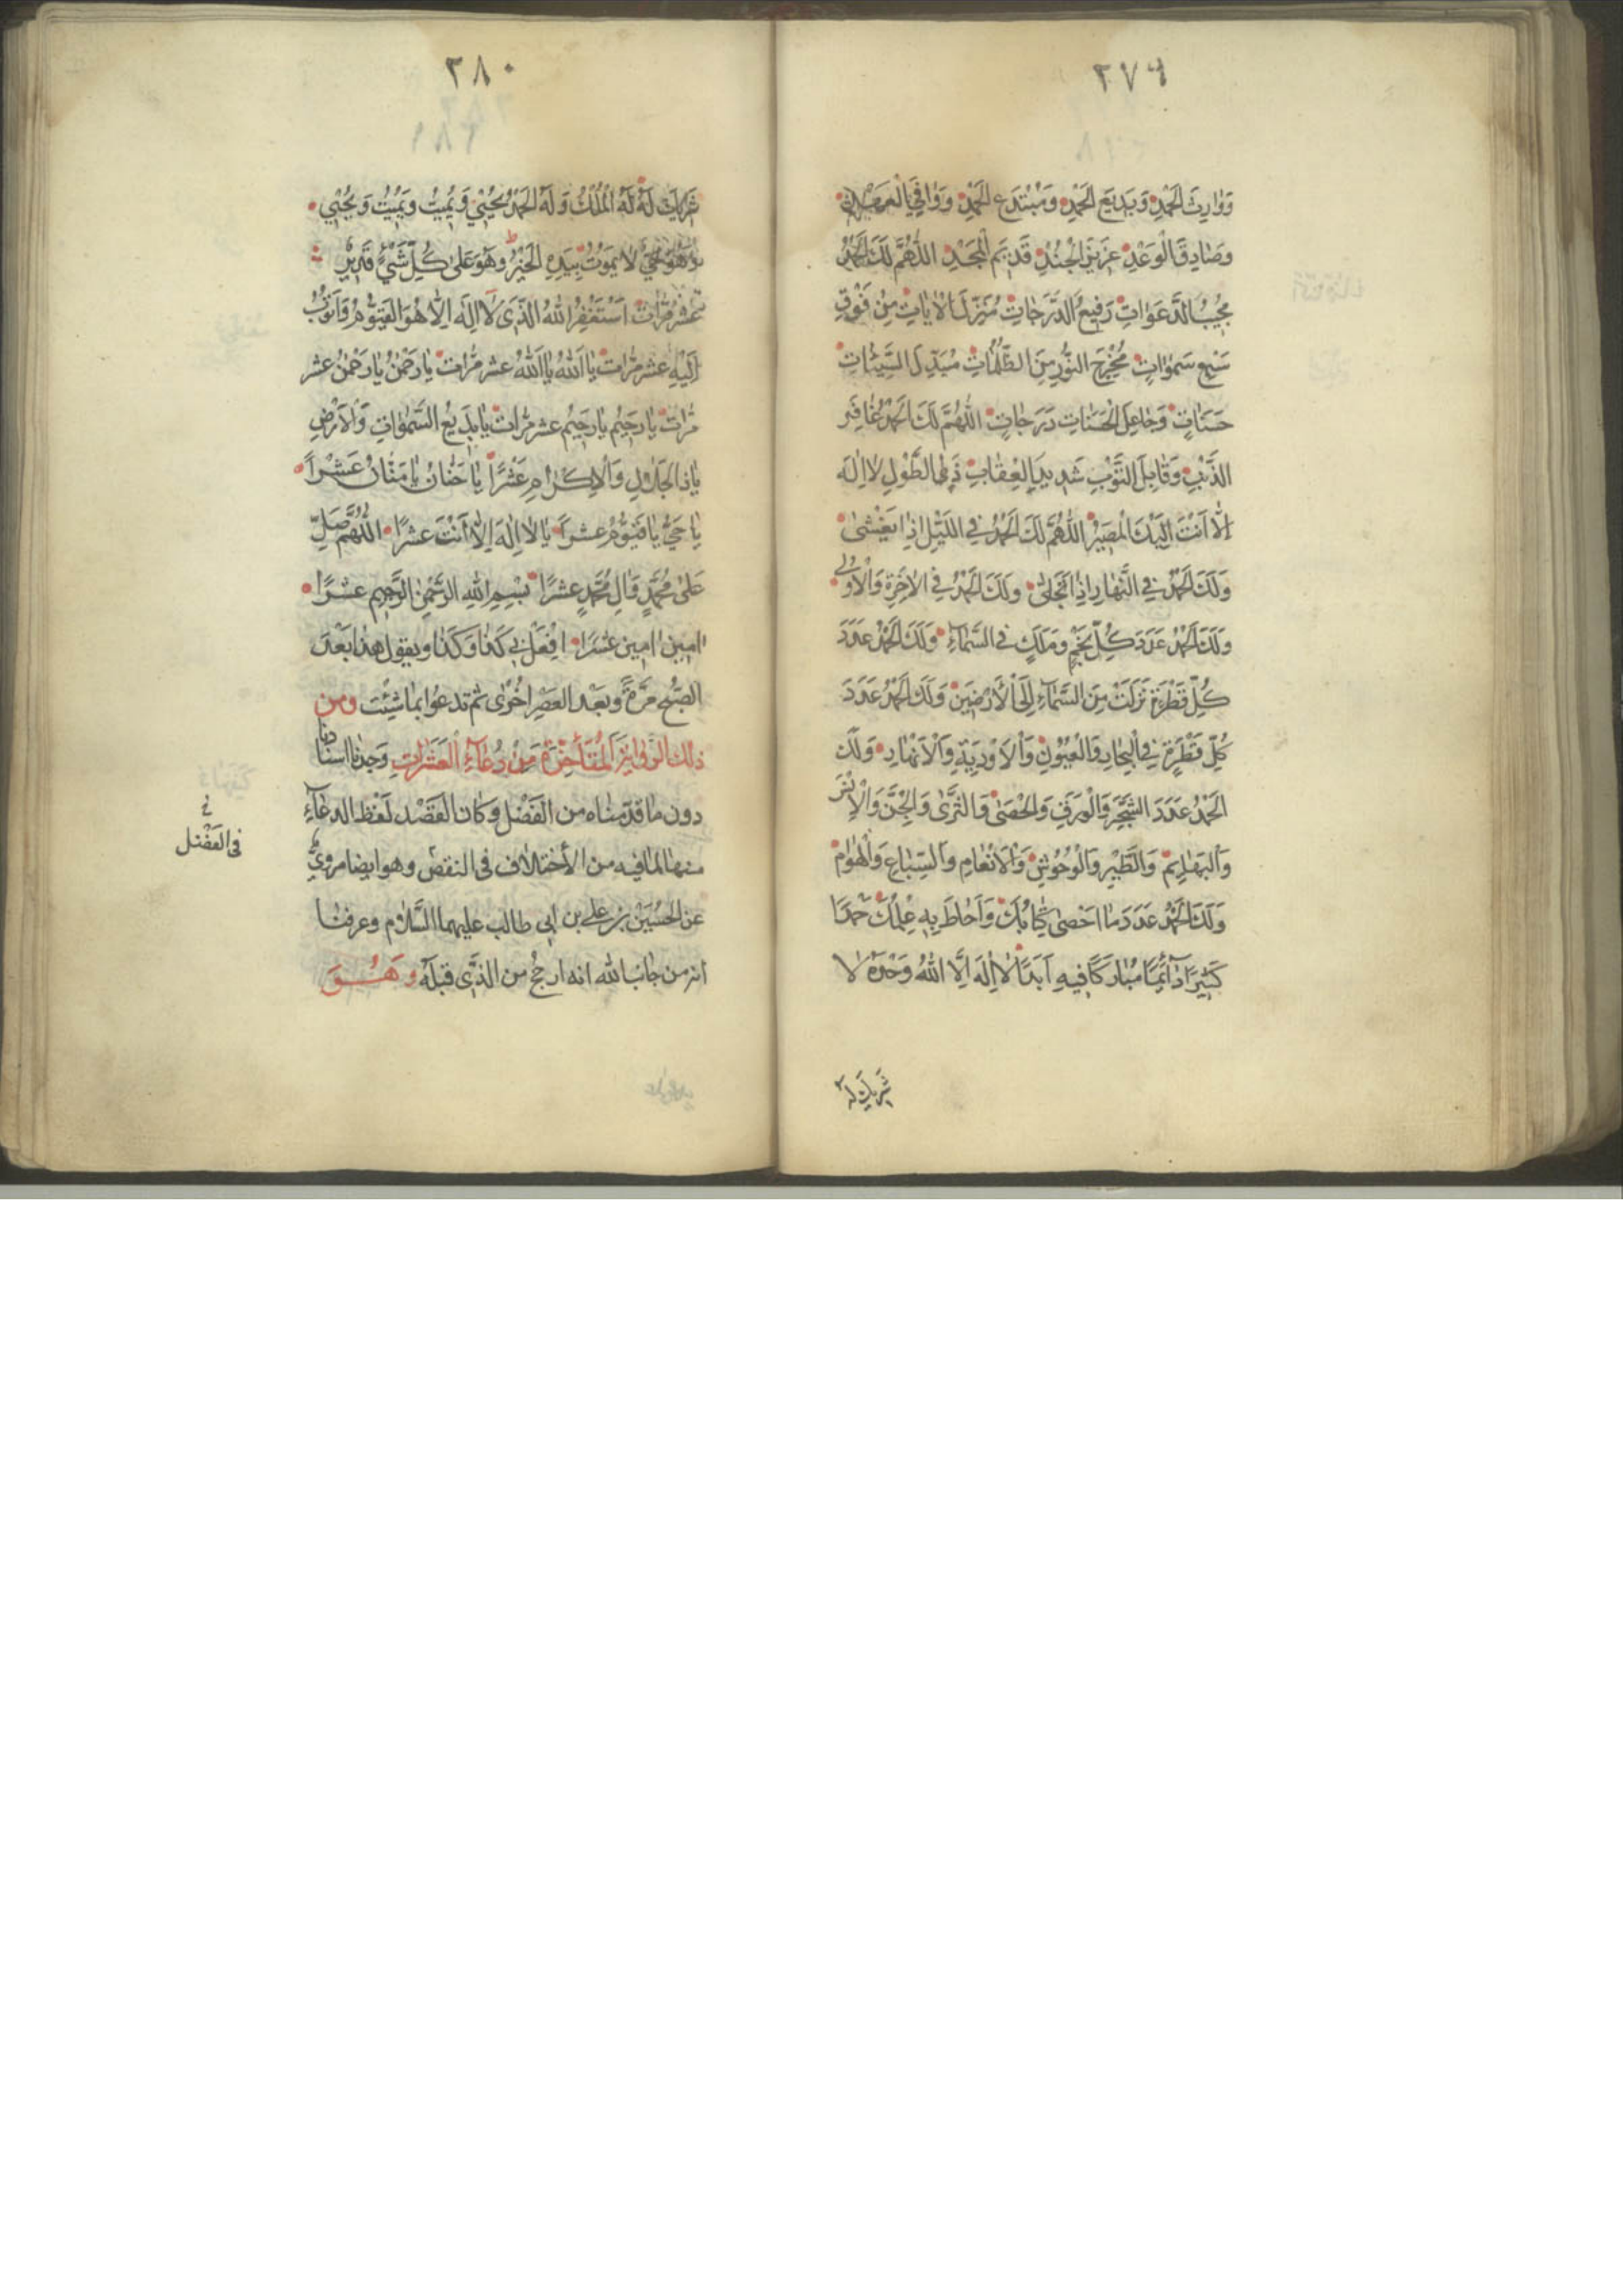 ٢٧٩
وَوَارِثَ الْحَمْدِ وَبَدِيعَ الْحَمْدِ وَمُبْتَدِعَ الْحَمْدِ وَوَافِيَ الْعَهْدِ
وَصَادِقَ الْوَعْدِ عَزِيزَ الْجُنْدِ قَدِيمَ الْمَجْدِ اللّٰهُمَّ لَكَ الْحَمْدُ
مُجِيبَ الدَّعَوَاتِ رَفِيعَ الدَّرَجَاتِ مُنْزِلَ الْاٰيَاتِ مِنْ فَوْقِ
سَبْعِ سَمٰوَاتٍ مُخْرِجَ النُّورِ مِنَ الظُّلُمَاتِ مُبَدِّلَ السَّيِّئَاتِ
حَسَنَاتٍ وَجَاعِلَ الْحَسَنَاتِ دَرَجَاتٍ اللّٰهُمَّ لَكَ الْحَمْدُ غَافِرَ
الذَّنْبِ وَقَابِلَ التَّوْبِ شَدِيدَ الْعِقَابِ ذَا الطَّوْلِ لَا اِلٰهَ
اِلَّا اَنْتَ اِلَيْكَ الْمَصِيرُ اللّٰهُمَّ لَكَ الْحَمْدُ فِي اللَّيْلِ اِذَا يَغْشٰى
وَلَكَ الْحَمْدُ فِي النَّهَارِ اِذَا تَجَلّٰى وَلَكَ الْحَمْدُ فِي الْاٰخِرَةِ وَالْاُولٰى
وَلَكَ الْحَمْدُ عَدَدَ كُلِّ نَجْمٍ وَمَلَكٍ فِي السَّمَاءِ وَلَكَ الْحَمْدُ عَدَدَ
كُلِّ قَطْرَةٍ نَزَلَتْ مِنَ السَّمَاءِ اِلَى الْاَرَضِينَ وَلَكَ الْحَمْدُ عَدَدَ
كُلِّ قَطْرَةٍ فِي الْبِحَارِ وَالْعُيُونِ وَالْاَوْدِيَةِ وَالْاَنْهَارِ وَلَكَ
الْحَمْدُ عَدَدَ الشَّجَرِ وَالْوَرَقِ وَالْحَصٰى وَالثَّرٰى وَالْجِنِّ وَالْاِنْسِ
وَالْبَهَائِمِ وَالطَّيْرِ وَالْوُحُوشِ وَالْاَنْعَامِ وَالسِّبَاعِ وَالْهَوَامِّ
وَلَكَ الْحَمْدُ عَدَدَ مَا اَحْصٰى كِتَابُكَ وَاَحَاطَ بِهِ عِلْمُكَ حَمْدًا
كَثِيرًا دَائِمًا مُبَارَكًا فِيهِ اَبَدًا لَا اِلٰهَ اِلَّا اللّٰهُ وَحْدَهُ لَا
شَرِيكَ لَهُ
٢٨٠
شَرِيكَ لَهُ لَهُ الْمُلْكُ وَلَهُ الْحَمْدُ يُحْيِي وَيُمِيتُ وَيُمِيتُ وَيُحْيِي
وَهُوَ حَيٌّ لَا يَمُوتُ بِيَدِهِ الْخَيْرُ وَهُوَ عَلٰى كُلِّ شَيْءٍ قَدِيرٌ
عشر مرّات اَسْتَغْفِرُ اللّٰهَ الَّذِي لَا اِلٰهَ اِلَّا هُوَ الْقَيُّومُ وَاَتُوبُ
اِلَيْهِ عشر مرّات يَا اَللّٰهُ يَا اَللّٰهُ عشر مرّات يَا رَحْمٰنُ يَا رَحْمٰنُ عشر
مرّات يَا رَحِيمُ يَا رَحِيمُ عشر مرّات يَا بَدِيعَ السَّمٰوَاتِ وَالْاَرْضِ
يَا ذَا الْجَلَالِ وَالْاِكْرَامِ عَشْرًا يَا حَنَّانُ يَا مَنَّانُ عَشْرًا
يَا حَيُّ يَا قَيُّومُ عشرًا يَا لَا اِلٰهَ اِلَّا اَنْتَ عشرًا اللّٰهُمَّ صَلِّ
عَلٰى مُحَمَّدٍ وَاٰلِ مُحَمَّدٍ عشرًا بِسْمِ اللّٰهِ الرَّحْمٰنِ الرَّحِيمِ عشرًا
اٰمِينَ اٰمِينَ عشرًا افْعَلْ بِي كَذَا وَكَذَا ويقول هذا بَعْدَ
الصُّبْحِ مَرَّةً وبَعْدَ العَصْرِ اُخْرٰى ثم تدعُوا بِمَا شِئْتَ ومن
ذلك الرواية المتأخرة مِنْ دُعَاءِ الْعَشَرَاتِ وَجَدْنَا اسنادنا
دون ما قدّمناه من الفَضْل وكان القَصْد لفْظ الدعاء
في الفَضْل
منها لما فيه من الأختلاف في النقص وهو ايضا مرويٌّ
عن الحُسَيْن بن علي بن ابي طالب عليهما السَّلام وعرفنا
انه من جانب الله انه ارجح من الذَّي قبله وَهُوَ